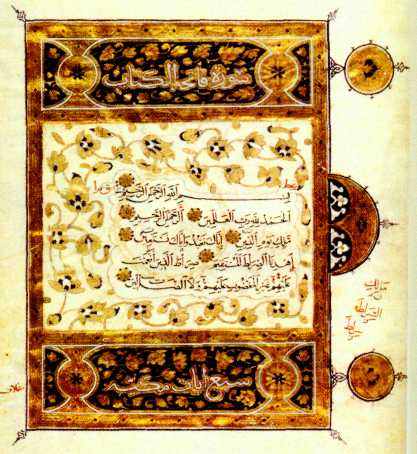 سورة فاتحة الكتاب
بسم الله الرحمن الرحيم
الحمد لله رب العلمين الرحمن الرحيم
ملك يوم الدين اياك نعبد واياك نستعين
اهدنا الصراط المستقيم صراط الذين انعمت
عليهم غير المغضوب عليهم ولا الضالين
سبع ايات مكية